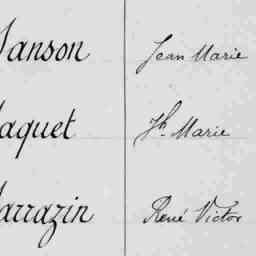 Janson Jean Marie
aquet Jh. Marie
arrazin René Victor